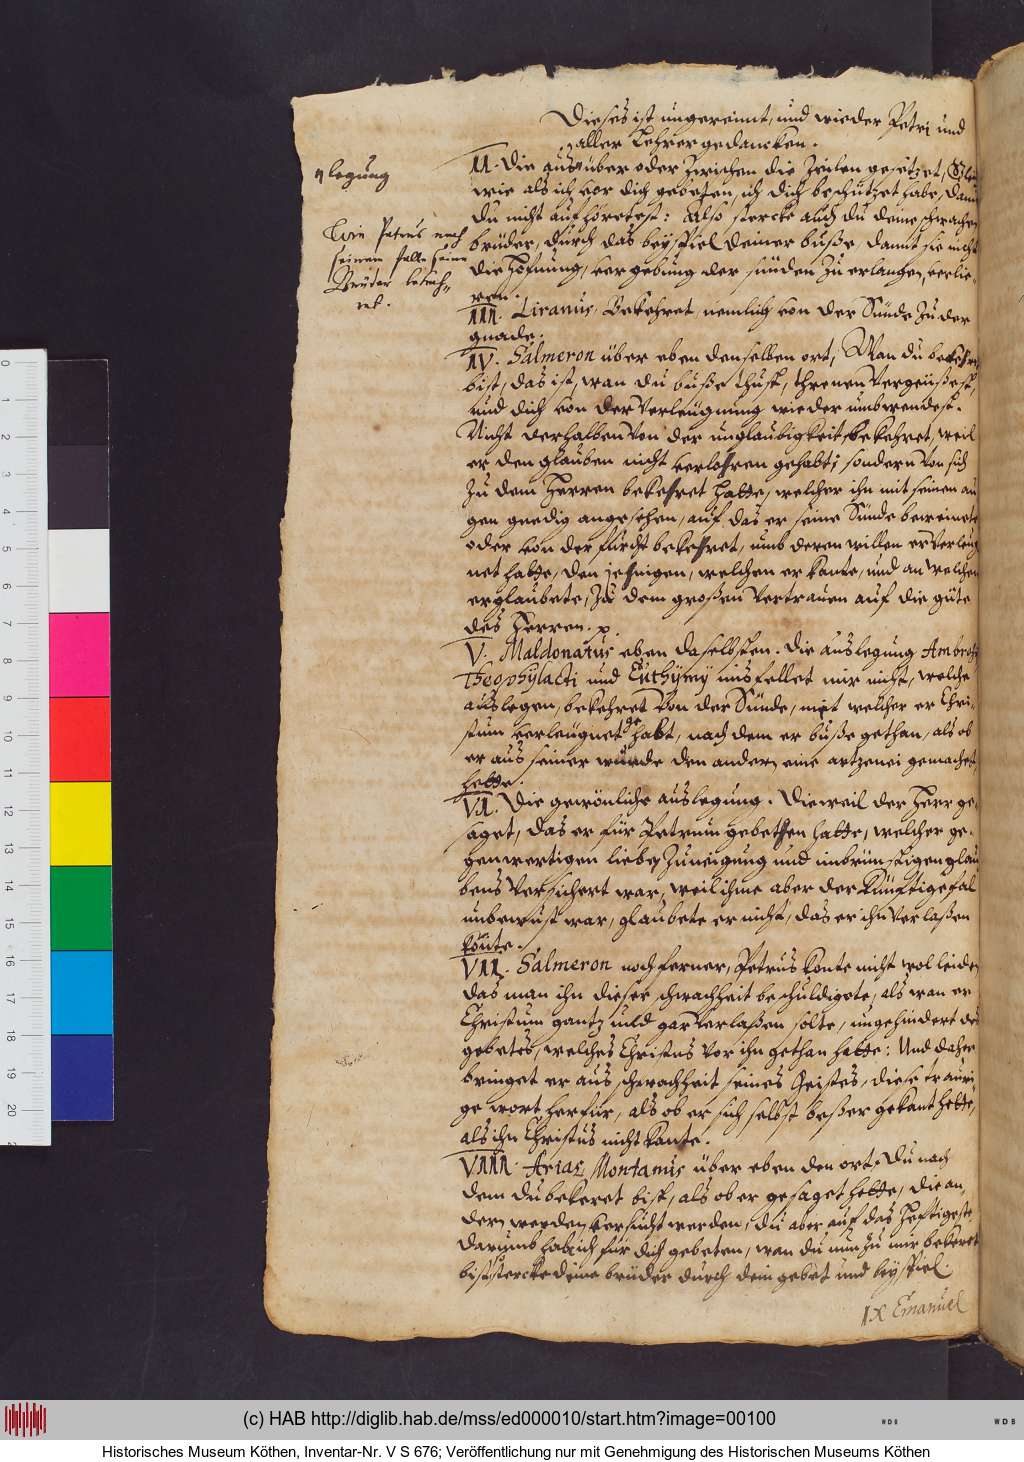 Dieses ist ungereimt, und wieder Petri und
aller Lehrer gedancken.
II. Die aus über oder zwischen die Zeilen gesetzet,
wie als ich vor dich gebeten, ich dich beschützet habe, damit
du nicht aufhöretest: Also stercke auch du deine schwachen
brüder, durch das beyspiel deiner buße, damit sie nicht
die Hofnung, vergebung der sünden zu erlangen, verlie-
ren.
III. Liranus. Bekehret, nemlich von der Sünde zu der
gnade.
IV. Salmeron über eben denselben ort, Wan du bekehret
bist, das ist, wan du buße thust, threnen vergeüßest,
und dich von der verleügnung wieder umbwendest.
Nicht derhalben von der unglaubigkeit bekehret, weil
er den glauben nicht verlohren gehabt; sondern von sich
zu dem Herren bekehret hatte, welcher ihn mit seinen au
gen gnedig angesehen, auf das er seine Sünde beweinete
oder von der furcht bekehret, umb deren willen er verleug
net hatte, den jehnigen, welchen er kante, und an welchen
er glaubete, zu dem großen vertrauen auf die güte
des Herren.
V. Maldonatus eben daselbsten. Die auslegung Ambrosij
Theophylacti und Euthymij misfellet mir nicht, welche
auslegen, bekehret von der Sünde, mit welcher er Chri-
stum verleügnet gehabt, nach dem er buße gethan, als ob
er aus seiner wunde den andern eine artzenei gemachet
hette.
VI. Die gewönliche auslegung. Dieweil der Herr ge-
saget, das er für Petrum gebethen hatte, welcher ge-
genwertigen liebe, zuneigung und inbrünstigen glau
bens versichert war, weil ihme aber der künftige fal
unbewust war, glaubete er nicht, das er ihn verlaßen
könte.
VII. Salmeron noch ferner, Petrus konte nicht wol leiden
das man ihn dieser schwachheit beschuldigte, als wan er
Christum gantz und gar verlaßen solte, ungehindert des
gebetes, welches Christus vor ihn gethan hatte: Und daher
bringet er aus schwachheit seines Geistes, diese trauri
ge wort herfür, als ob er sich selbst beßer gekant hette,
als ihn Christus nicht kante.
VIII. Arias Montanus über eben den ort, Du nach
dem du bekeret bist, als ob er gesaget hette, die an-
dern werden versucht werden, du aber auf das heftigeste
darumb hab ich für dich gebeten, wan du nun zu mir bekeret
bist, stercke deine brüder durch dein gebet und beyspiel.
IX Emanuel
legung
Wie Petrus nach
seinem falle seine
Brüder
0
1
2
3
4
5
6
7
8
9
10
11
12
13
14
15
16
17
18
19
20
(c) HAB http://diglib.hab.de/mss/ed000010/start.htm?image=00100
WDB
WDB
Historisches Museum Köthen, Inventar-Nr. V S 676; Veröffentlichung nur mit Genehmigung des Historischen Museums Köthen